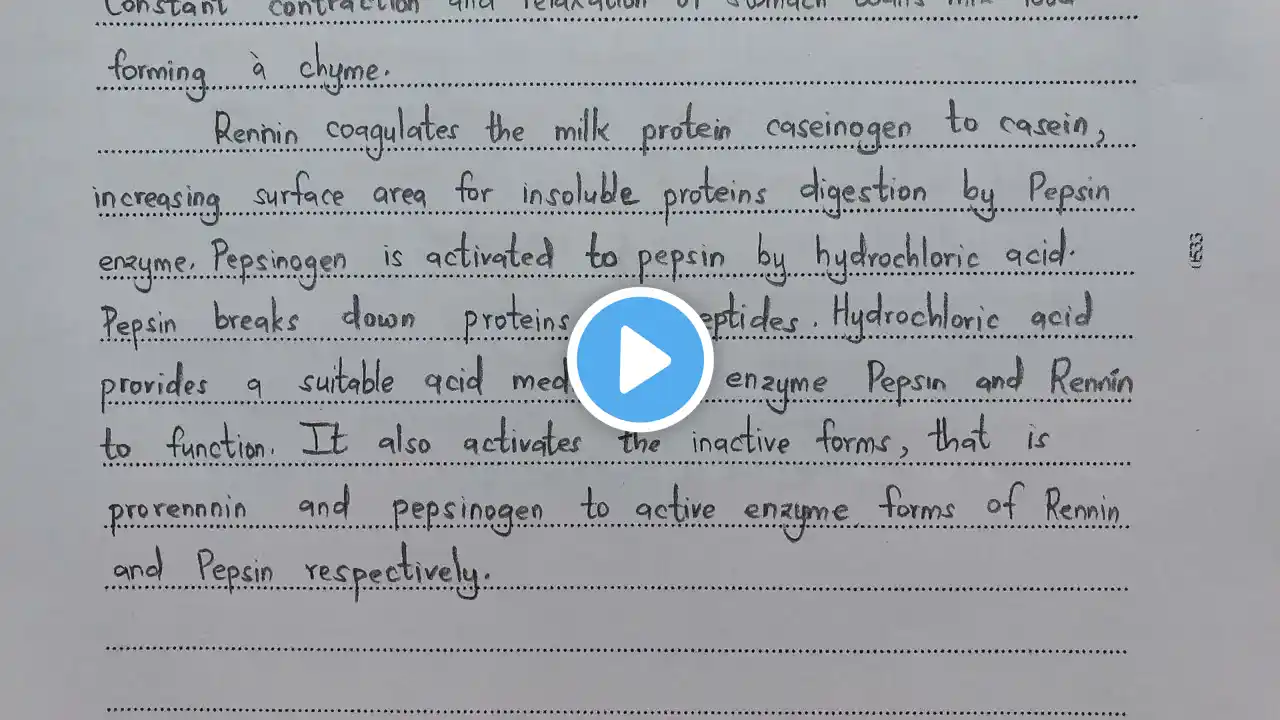 Constant contraction and relaxation of stomach walls mix food
forming à chyme.
Rennin coagulates the milk protein caseinogen to casein,
increasing surface area for insoluble proteins digestion by Pepsin
enzyme. Pepsinogen is activated to pepsin by hydrochloric acid.
Pepsin breaks down proteins eptides. Hydrochloric acid
provides a suitable acid med enzyme Pepsin and Rennin
to function. It also activates the inactive forms, that is
prorennnin and pepsinogen to active enzyme forms of Rennin
and Pepsin respectively.